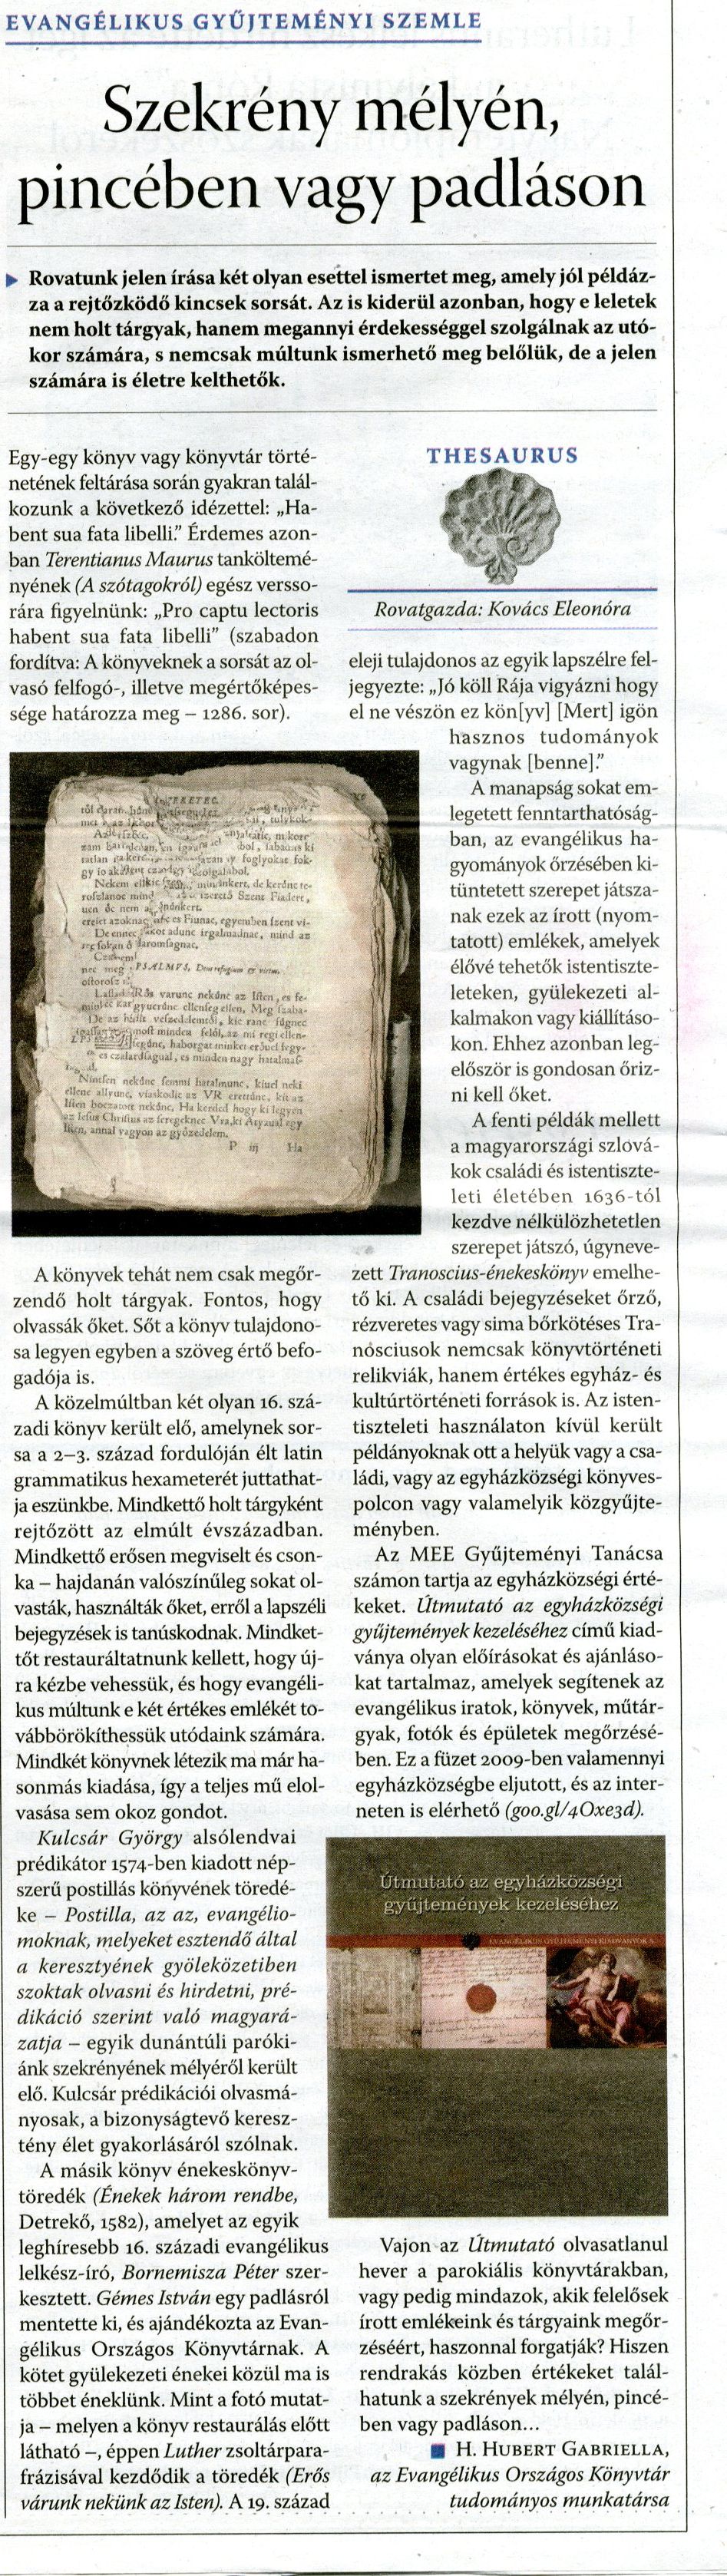 EVANGÉLIKUS GYŰJTEMÉNYI SZEMLE
Szekrény mélyén,
pincében vagy padláson
▶ Rovatunk jelen írása két olyan esettel ismertet meg, amely jól példáz-
za a rejtőzködő kincsek sorsát. Az is kiderül azonban, hogy e leletek
nem holt tárgyak, hanem megannyi érdekességgel szolgálnak az utó-
kor számára, s nemcsak múltunk ismerhető meg belőlük, de a jelen
számára is életre kelthetők.
Egy-egy könyv vagy könyvtár törté-
netének feltárása során gyakran talál-
kozunk a következő idézettel: „Ha-
bent sua fata libelli.” Érdemes azon-
ban Terentianus Maurus tanköltemé-
nyének (A szótagokról) egész versso-
rára figyelnünk: „Pro captu lectoris
habent sua fata libelli” (szabadon
fordítva: A könyveknek a sorsát az ol-
vasó felfogó-, illetve megértőképes-
sége határozza meg – 1286. sor).
Nekem
PSALMVS, Deus refugium et virtus.
varunc nekünc az Isten, es se-
Nintsen nekünc semmi hatalmunc, kiuel neki
ellene allyunc, viaskodic az VR erettünc, kit az
Isten boczatott nekünc, Ha kerded hogy ki legyen
az Iesus Christus az seregeknec Vra, ki Atyaual egy
Isten, annal vagyon az gyözedelem.
P iij Ha
A könyvek tehát nem csak megőr-
zendő holt tárgyak. Fontos, hogy
olvassák őket. Sőt a könyv tulajdono-
sa legyen egyben a szöveg értő befo-
gadója is.
A közelmúltban két olyan 16. szá-
zadi könyv került elő, amelynek sor-
sa a 2–3. század fordulóján élt latin
grammatikus hexameterét juttathat-
ja eszünkbe. Mindkettő holt tárgyként
rejtőzött az elmúlt évszázadban.
Mindkettő erősen megviselt és cson-
ka – hajdanán valószínűleg sokat ol-
vasták, használták őket, erről a lapszéli
bejegyzések is tanúskodnak. Mindket-
tőt restauráltatnunk kellett, hogy új-
ra kézbe vehessük, és hogy evangéli-
kus múltunk e két értékes emlékét to-
vábbörökíthessük utódaink számára.
Mindkét könyvnek létezik ma már ha-
sonmás kiadása, így a teljes mű elol-
vasása sem okoz gondot.
Kulcsár György alsólendvai
prédikátor 1574-ben kiadott nép-
szerű postillás könyvének töredé-
ke – Postilla, az az, evangélio-
moknak, melyeket esztendő által
a keresztyének gyöleközetiben
szoktak olvasni és hirdetni, pré-
dikáció szerint való magyará-
zatja – egyik dunántúli paróki-
ánk szekrényének mélyéről került
elő. Kulcsár prédikációi olvasmá-
nyosak, a bizonyságtevő keresz-
tény élet gyakorlásáról szólnak.
A másik könyv énekeskönyv-
töredék (Énekek három rendbe,
Detrekő, 1582), amelyet az egyik
leghíresebb 16. századi evangélikus
lelkész-író, Bornemisza Péter szer-
kesztett. Gémes István egy padlásról
mentette ki, és ajándékozta az Evan-
gélikus Országos Könyvtárnak. A
kötet gyülekezeti énekei közül ma is
többet éneklünk. Mint a fotó mutat-
ja – melyen a könyv restaurálás előtt
látható –, éppen Luther zsoltárpara-
frázisával kezdődik a töredék (Erős
várunk nekünk az Isten). A 19. század
THESAURUS
Rovatgazda: Kovács Eleonóra
eleji tulajdonos az egyik lapszélre fel-
jegyezte: „Jó köll Rája vigyázni hogy
el ne vészön ez kön[yv] [Mert] igön
hasznos tudományok
vagynak [benne].”
A manapság sokat em-
legetett fenntarthatóság-
ban, az evangélikus ha-
gyományok őrzésében ki-
tüntetett szerepet játsza-
nak ezek az írott (nyom-
tatott) emlékek, amelyek
élővé tehetők istentiszte-
leteken, gyülekezeti al-
kalmakon vagy kiállításo-
kon. Ehhez azonban leg-
először is gondosan őriz-
ni kell őket.
A fenti példák mellett
a magyarországi szlová-
kok családi és istentiszte-
leti életében 1636-tól
kezdve nélkülözhetetlen
szerepet játszó, úgyneve-
zett Tranoscius-énekeskönyv emelhe-
tő ki. A családi bejegyzéseket őrző,
rézveretes vagy sima bőrkötéses Tra-
nósciusok nemcsak könyvtörténeti
relikviák, hanem értékes egyház- és
kultúrtörténeti források is. Az isten-
tiszteleti használaton kívül került
példányoknak ott a helyük vagy a csa-
ládi, vagy az egyházközségi könyves-
polcon vagy valamelyik közgyűjte-
ményben.
Az MEE Gyűjteményi Tanácsa
számon tartja az egyházközségi érté-
keket. Útmutató az egyházközségi
gyűjtemények kezeléséhez című kiad-
ványa olyan előírásokat és ajánláso-
kat tartalmaz, amelyek segítenek az
evangélikus iratok, könyvek, műtár-
gyak, fotók és épületek megőrzésé-
ben. Ez a füzet 2009-ben valamennyi
egyházközségbe eljutott, és az inter-
neten is elérhető (goo.gl/4Oxe3d).
Útmutató az egyházközségi
gyűjtemények kezeléséhez
EVANGÉLIKUS GYŰJTEMÉNYI KIADVÁNYOK
Vajon az Útmutató olvasatlanul
hever a parokiális könyvtárakban,
vagy pedig mindazok, akik felelősek
írott emlékeink és tárgyaink megőr-
zéséért, haszonnal forgatják? Hiszen
rendrakás közben értékeket talál-
hatunk a szekrények mélyén, pincé-
ben vagy padláson...
■ H. HUBERT GABRIELLA,
az Evangélikus Országos Könyvtár
tudományos munkatársa